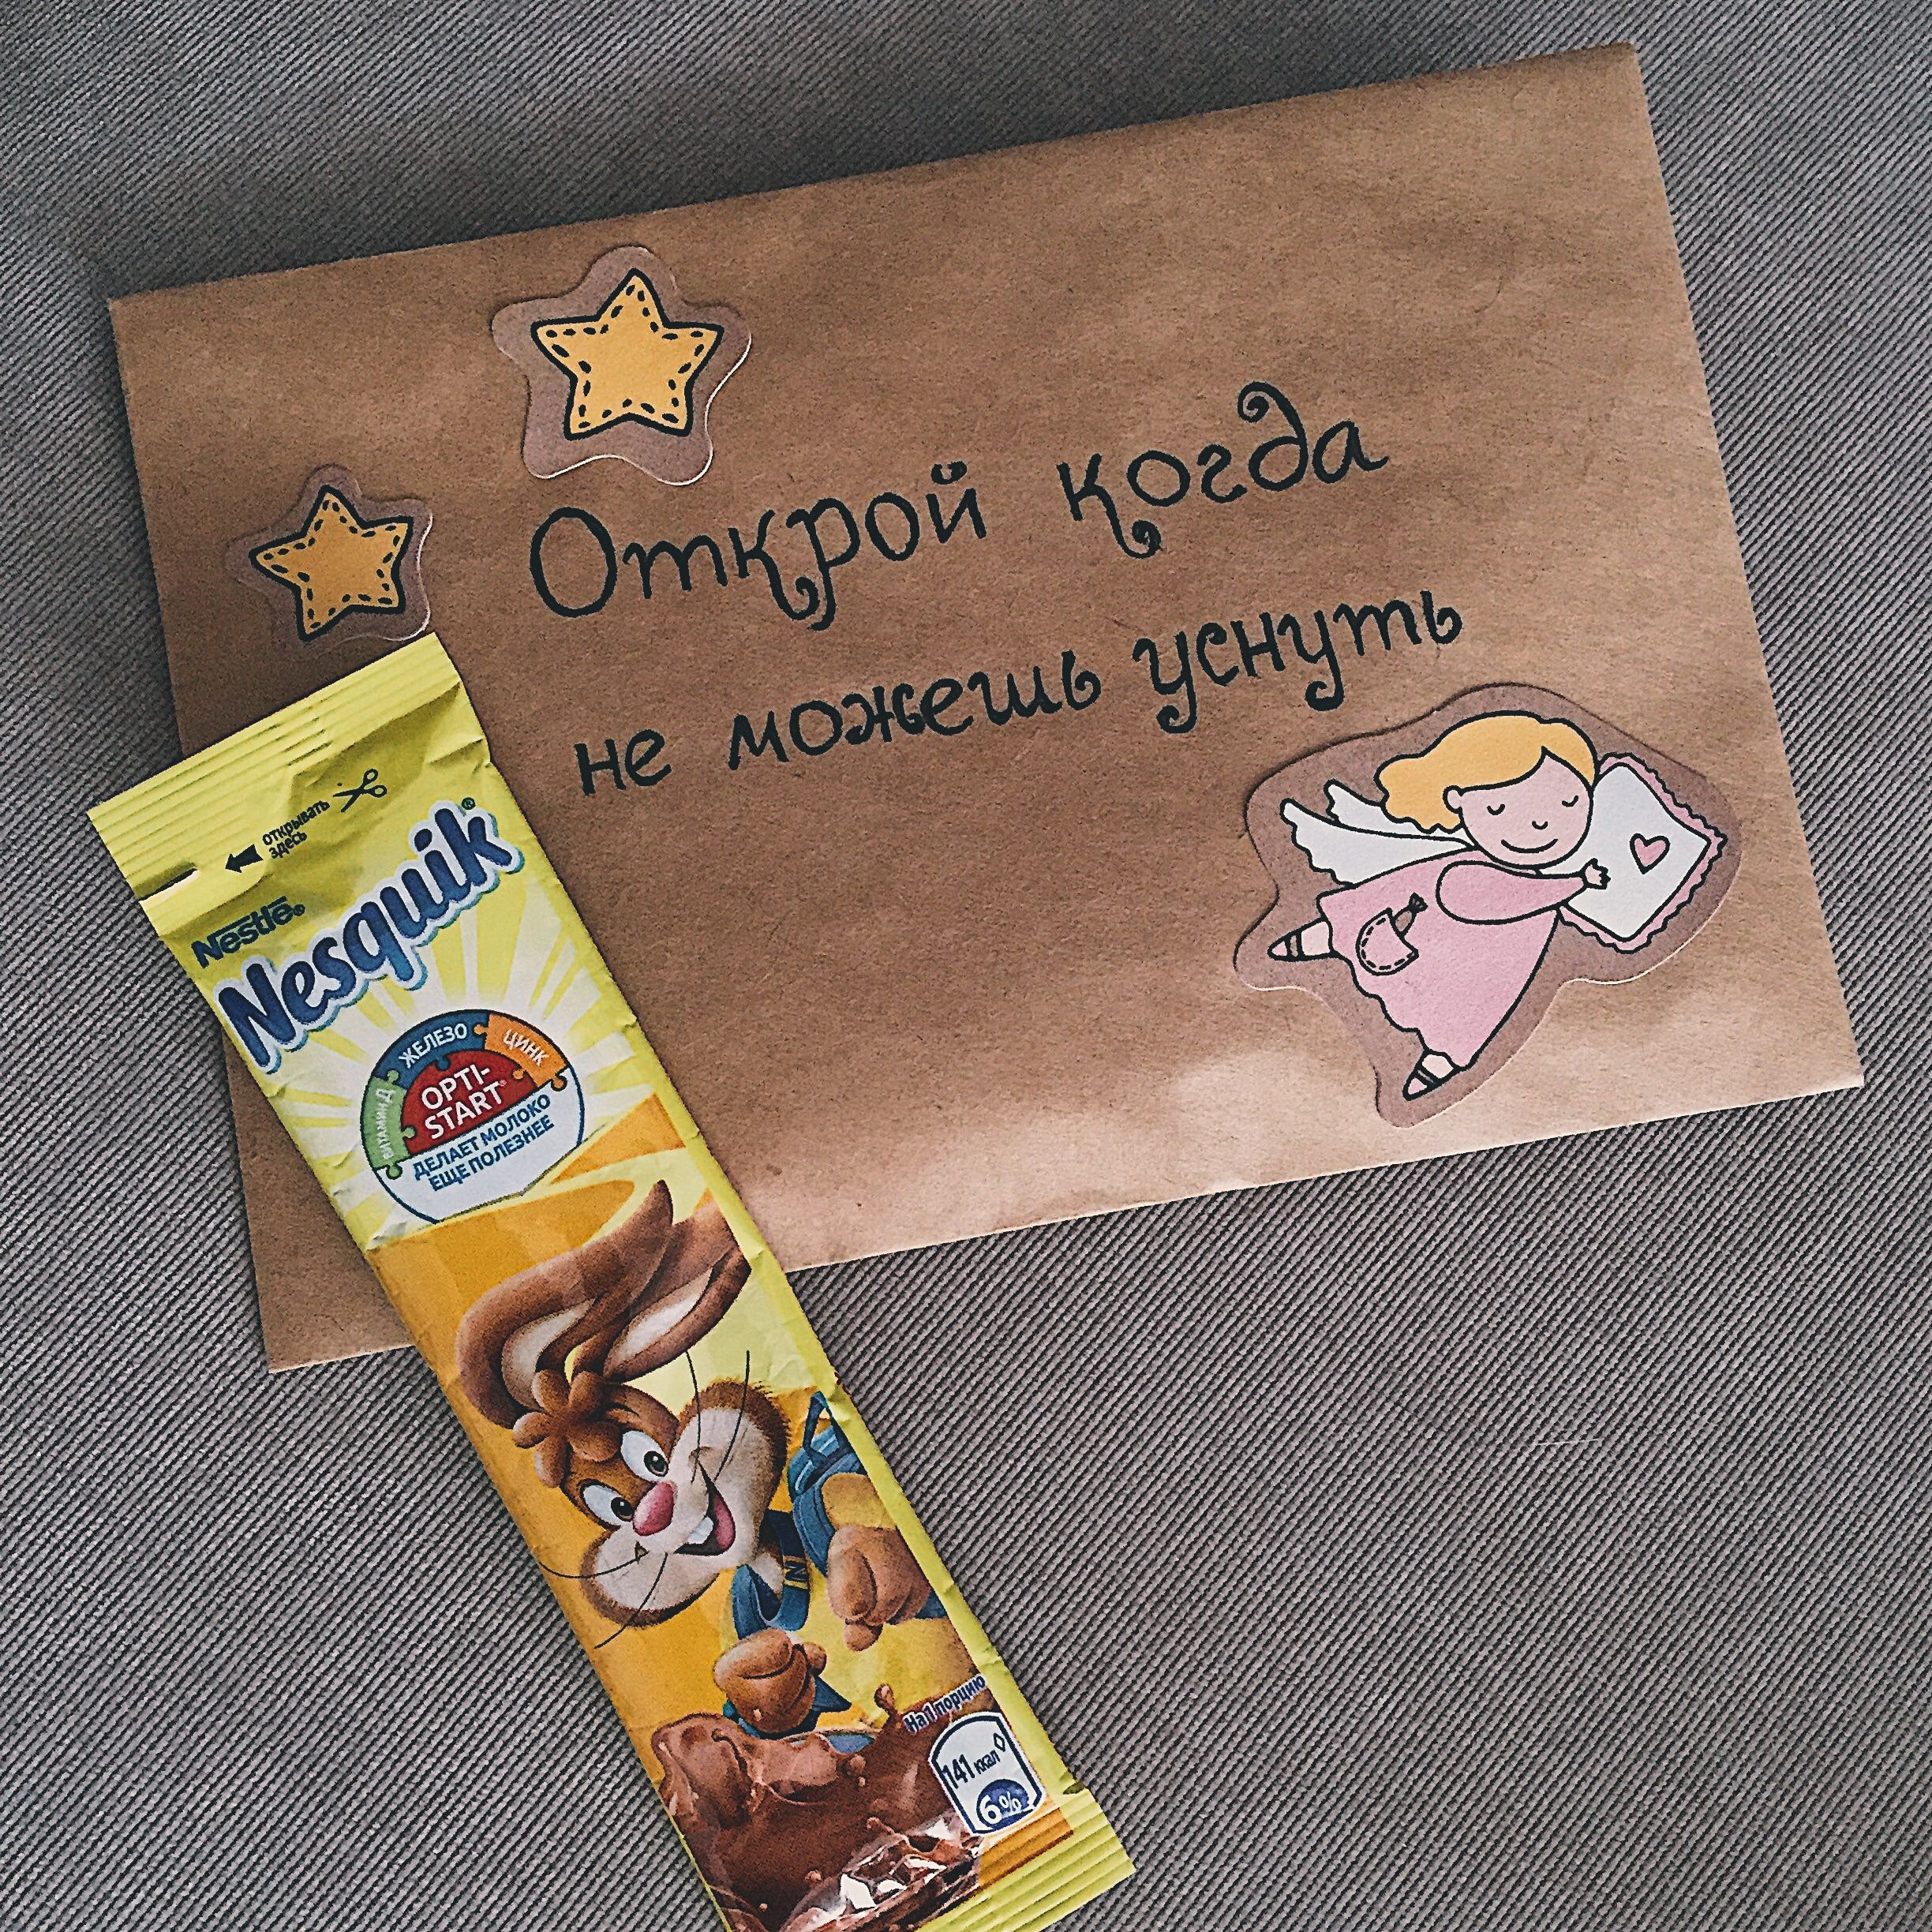 Открой когда
не можешь уснуть
открывать
здесь
Nestlé®
Nesquik®
ВИТАМИН Д
ЖЕЛЕЗО
ЦИНК
OPTI-
START®
ДЕЛАЕТ МОЛОКО
ЕЩЕ ПОЛЕЗНЕЕ
N
На 1 порцию
141 ккал
6%